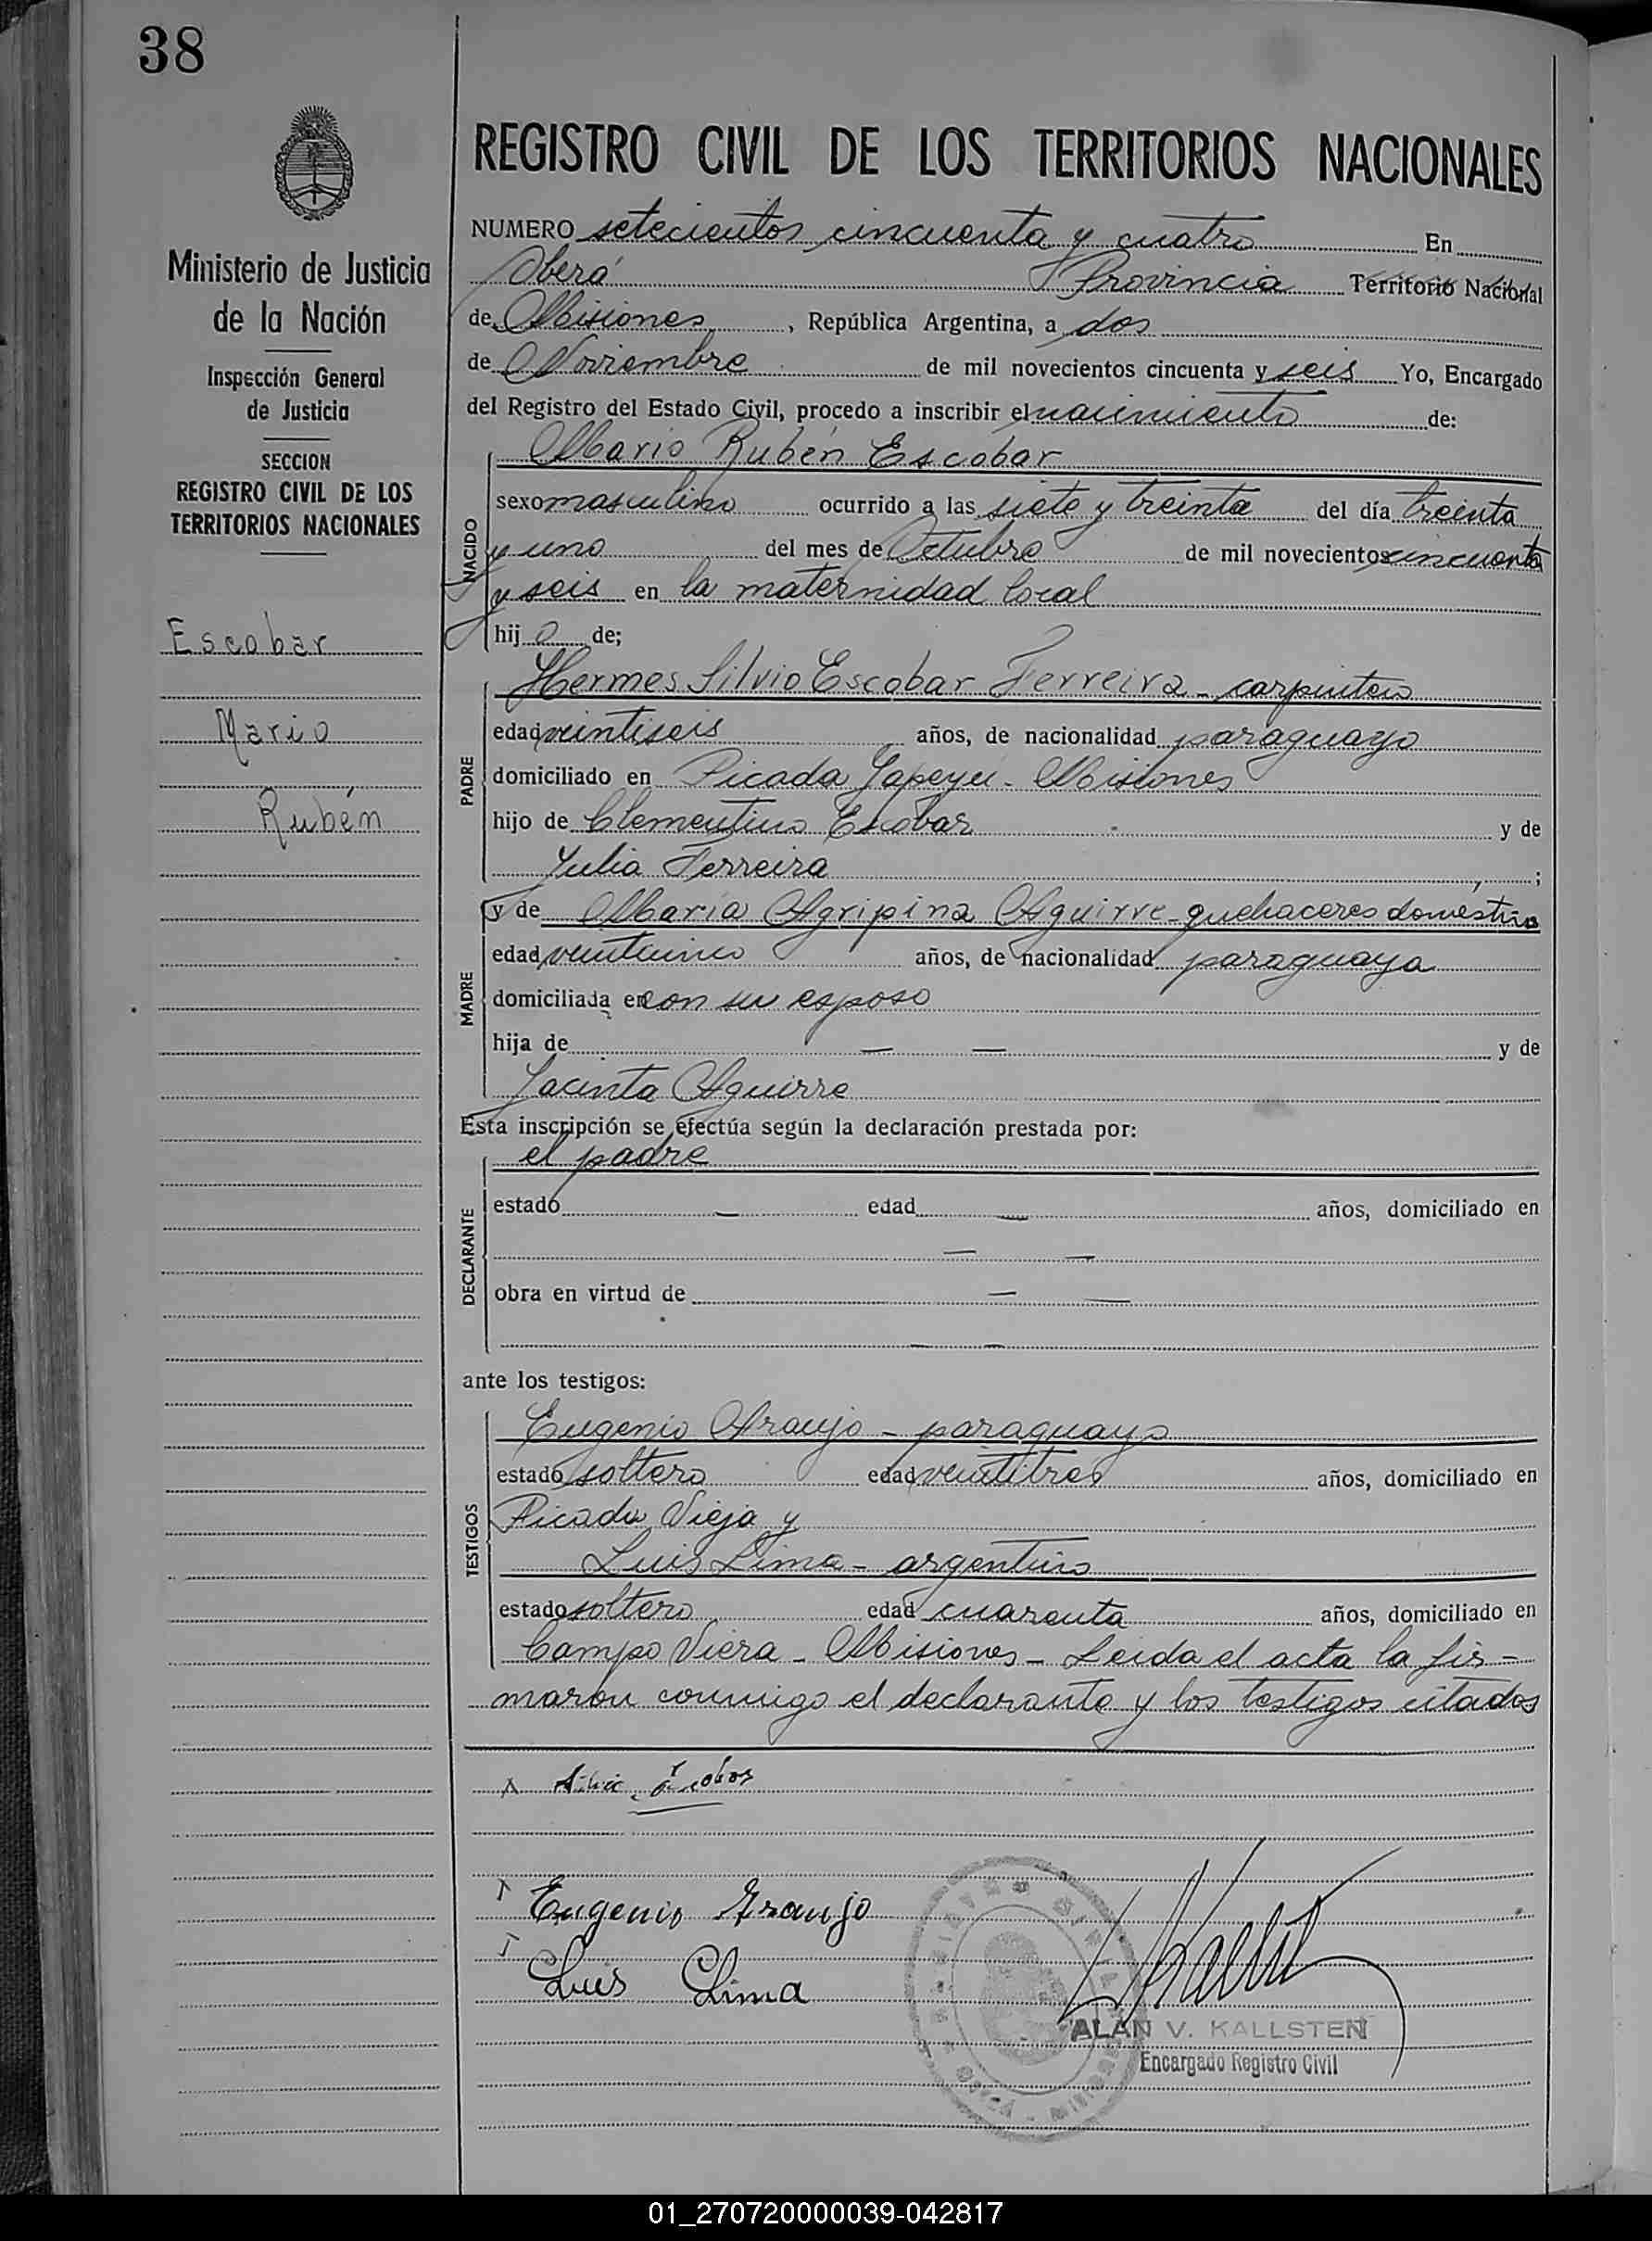 38
REGISTRO CIVIL DE LOS TERRITORIOS NACIONALES
Ministerio de Justicia
de la Nación
Inspección General
de Justicia
SECCION
REGISTRO CIVIL DE LOS
TERRITORIOS NACIONALES
Escobar
Mario
Rubén
NUMERO setecientos cincuenta y cuatro En
Oberá Provincia Territorio Nacional
de Misiones, República Argentina, a dos
de Noviembre de mil novecientos cincuenta y seis Yo, Encargado
del Registro del Estado Civil, procedo a inscribir el nacimiento de:
Mario Rubén Escobar
NACIDO
sexo masculino ocurrido a las siete y treinta del día treinta
y uno del mes de Octubre de mil novecientos cincuenta
y seis en la maternidad local
hij o de;
Hermes Silvio Escobar Ferreira - carpintero
PADRE
edad veintiseis años, de nacionalidad paraguayo
domiciliado en Picada Yapeyú - Misiones
hijo de Clementino Escobar y de
Julia Ferreira ;
y de María Agripina Aguirre - quehaceres domestico
MADRE
edad veinticinco años, de nacionalidad paraguaya
domiciliada en con su esposo
hija de — — y de
Jacinta Aguirre
Esta inscripción se efectúa según la declaración prestada por:
el padre
DECLARANTE
estado — edad — años, domiciliado en
— —
obra en virtud de — —
— —
ante los testigos:
TESTIGOS
Eugenio Araujo - paraguayo
estado soltero edad veintitres años, domiciliado en
Picada Vieja y
Luis Lima - argentino
estado soltero edad cuarenta años, domiciliado en
Campo Viera - Misiones - Leida el acta la fir-
maron conmigo el declarante y los testigos citados
Silvio Escobar
Eugenio Araujo
Luis Lima
ALAN V. KALLSTEN
Encargado Registro Civil
01_270720000039-042817